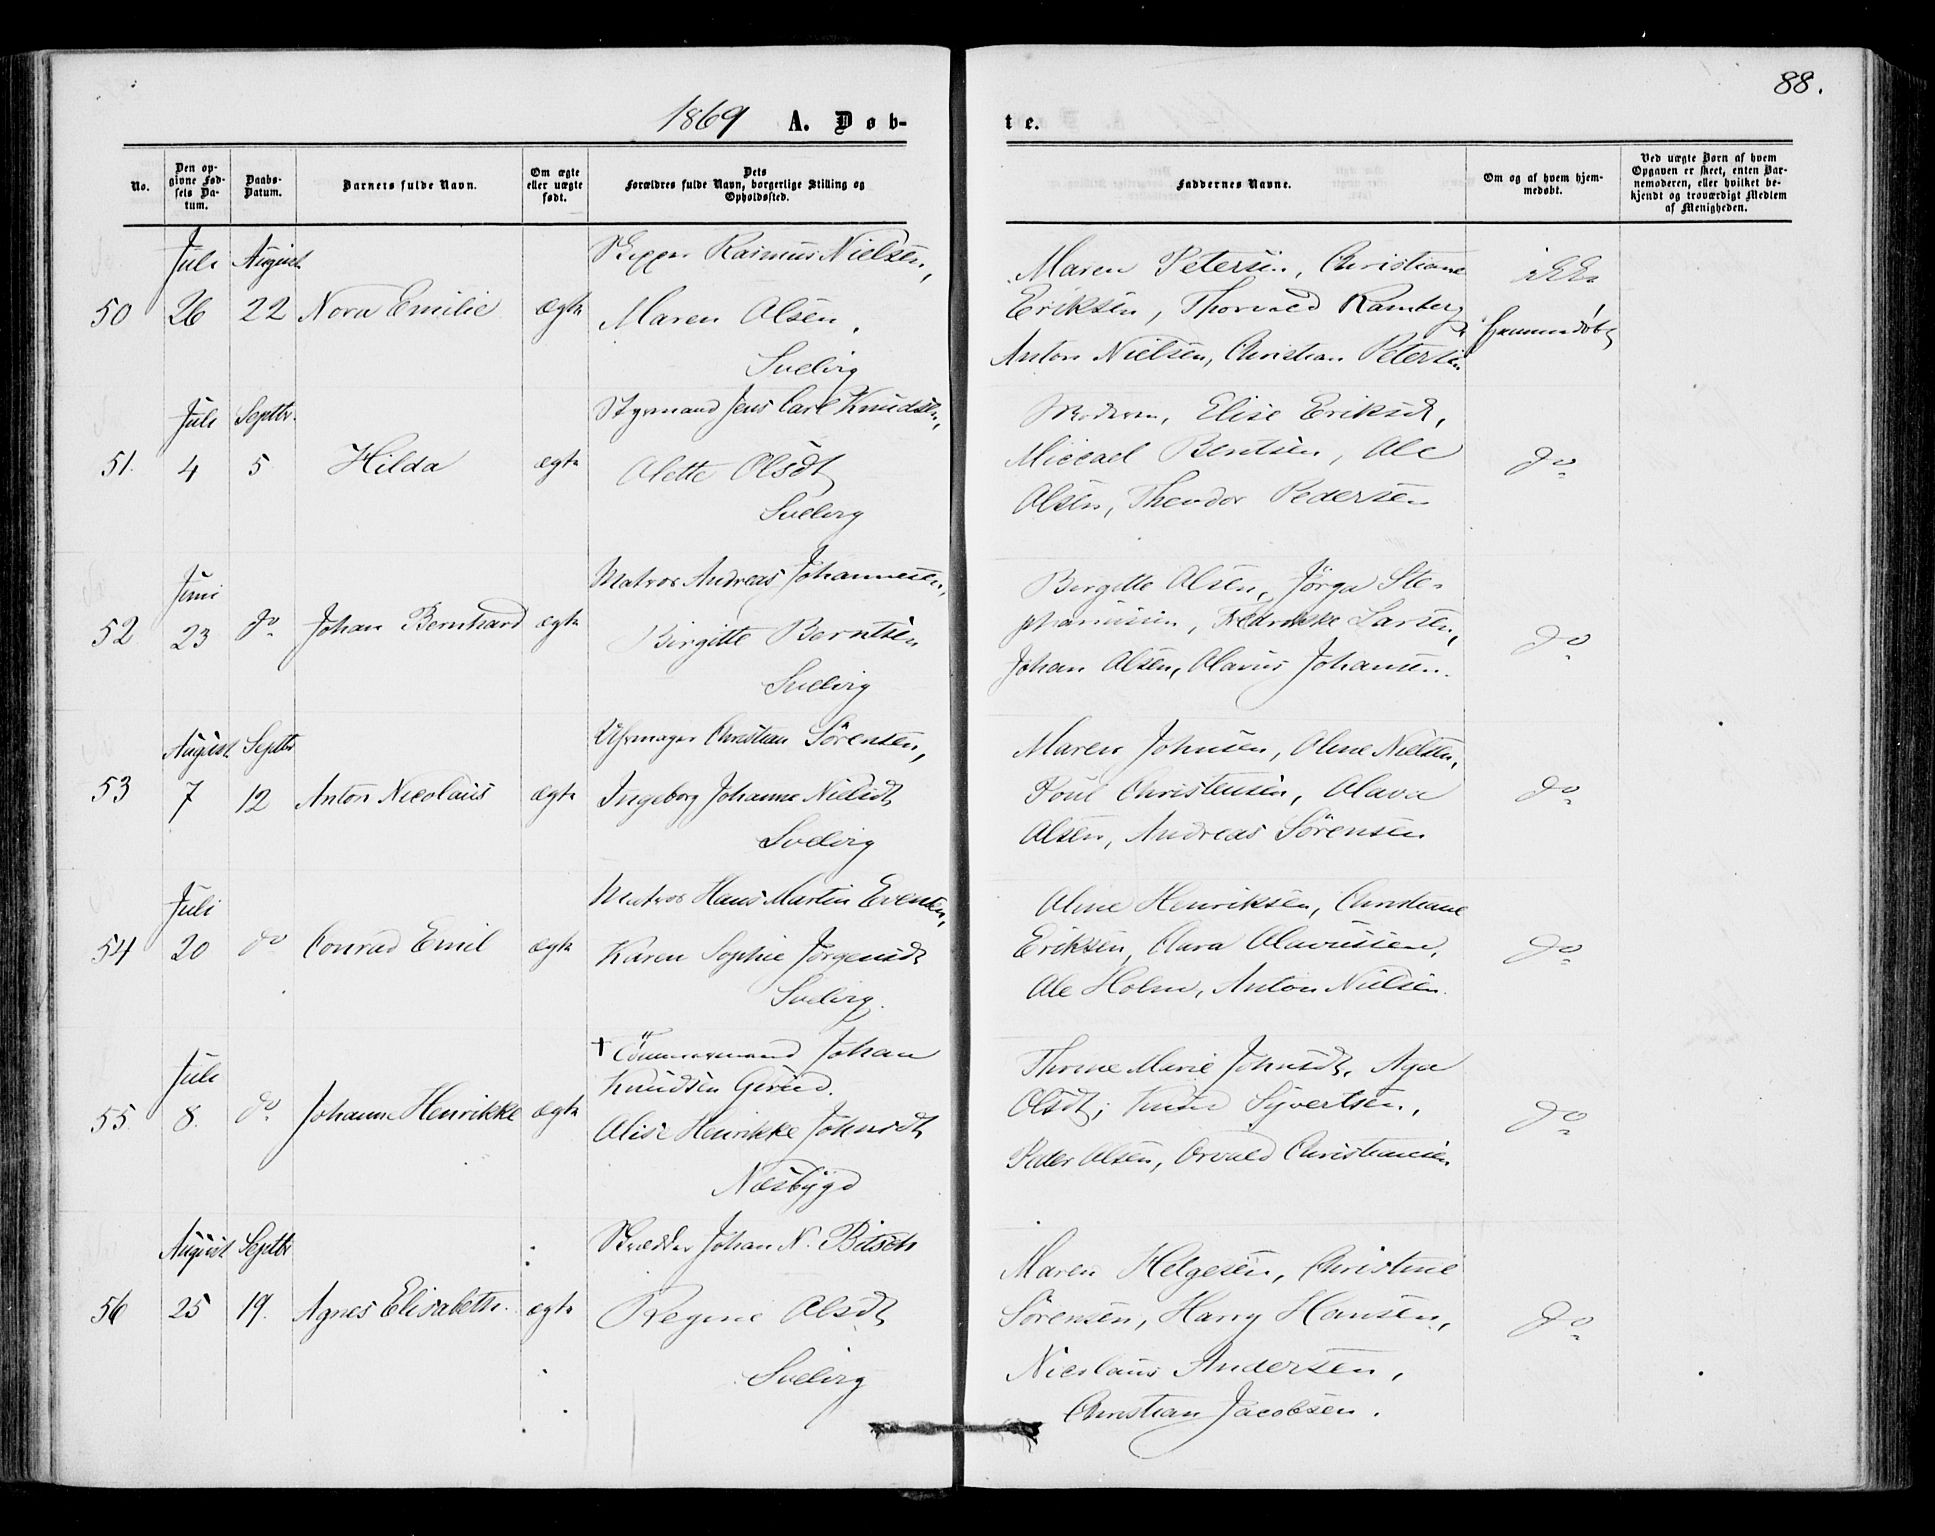 88.
1869 A. Døb-
te.
No.
Den op-
givne Fød-
sels Da-
tum.
Daabs-
Datum.
Barnets fulde Navn.
Om ægte
eller uægte
født.
Dets
Forældres fulde Navn, borgerlige Stilling og
Opholdssted.
Faddernes Navne.
Om og af hvem hjem-
medøbt.
Ved uægte Børn af hvem
Opgaven er skeet, enten Bar-
nemoderen, eller hvilket be-
kjendt og troværdigt Medlem
af Menigheden.
50
Juli
26
August
22
Nora Emilie
ægte
Skipper Rasmus Nielsen,
Maren Olsen,
Svelvig
Maren Petersen, Christiane
Eriksen, Thorvald Ramberg
Anton Nielsen, Christian Petersen
ikke
hjemmedøbt
51.
Juli
4
Septbr.
5
Hilda
ægte
Styrmand Jens Carl Knudsen,
Olette Olsdt
Svelvig
Moderen, Elise Eriksdt,
Michael Bentsen, Ole
Olsen, Theodor Pedersen
do
52
Juni
23
do
Johan Bernhard
ægte
Matros Andreas Johannesen,
Birgitte Berntsen
Svelvig
Birgitte Olsen, Jørga Ste-
phanussen, Fredrikke Larsen,
Johan Olsen, Olavus Johansen.
do
53
August
7
Septbr
12
Anton Nicolaus
ægte
Uhrmager Christian Sörensen,
Ingeborg Johanne Nielsdt
Svelvig
Maren Johnsen, Oline Nielsen,
Poul Christensen, Olava
Olsen, Andreas Sörensen
do
54
Juli
20
do
Conrad Emil
ægte
Matros Hans Martin Evensen,
Karen Sophie Jørgensdt
Svelvig.
Oline Henriksen, Christiane
Eriksen, Clara Olavussen,
Ole Holm, Anton Nielsen.
do
55.
Juli
8.
do
Johanne Henrikke
ægte
† Tömmermand Johan
Knudsen Grund.
Elise Henrikke Johnsdt
Næsbygd
Thrine Marie Johnsdt, Aga
Olsdt, Knud Syvertsen,
Peder Olsen, Orvald Christiansen
do
56
August
25
Septbr
19.
Agnes Elisabeth.
ægte
Skrædder Johan N. Bitsch
Regine Olsdt
Svelvig
Maren Helgesen, Christine
Sörensen, Harry Hansen,
Nicolaus Andersen,
Christian Jacobsen.
do